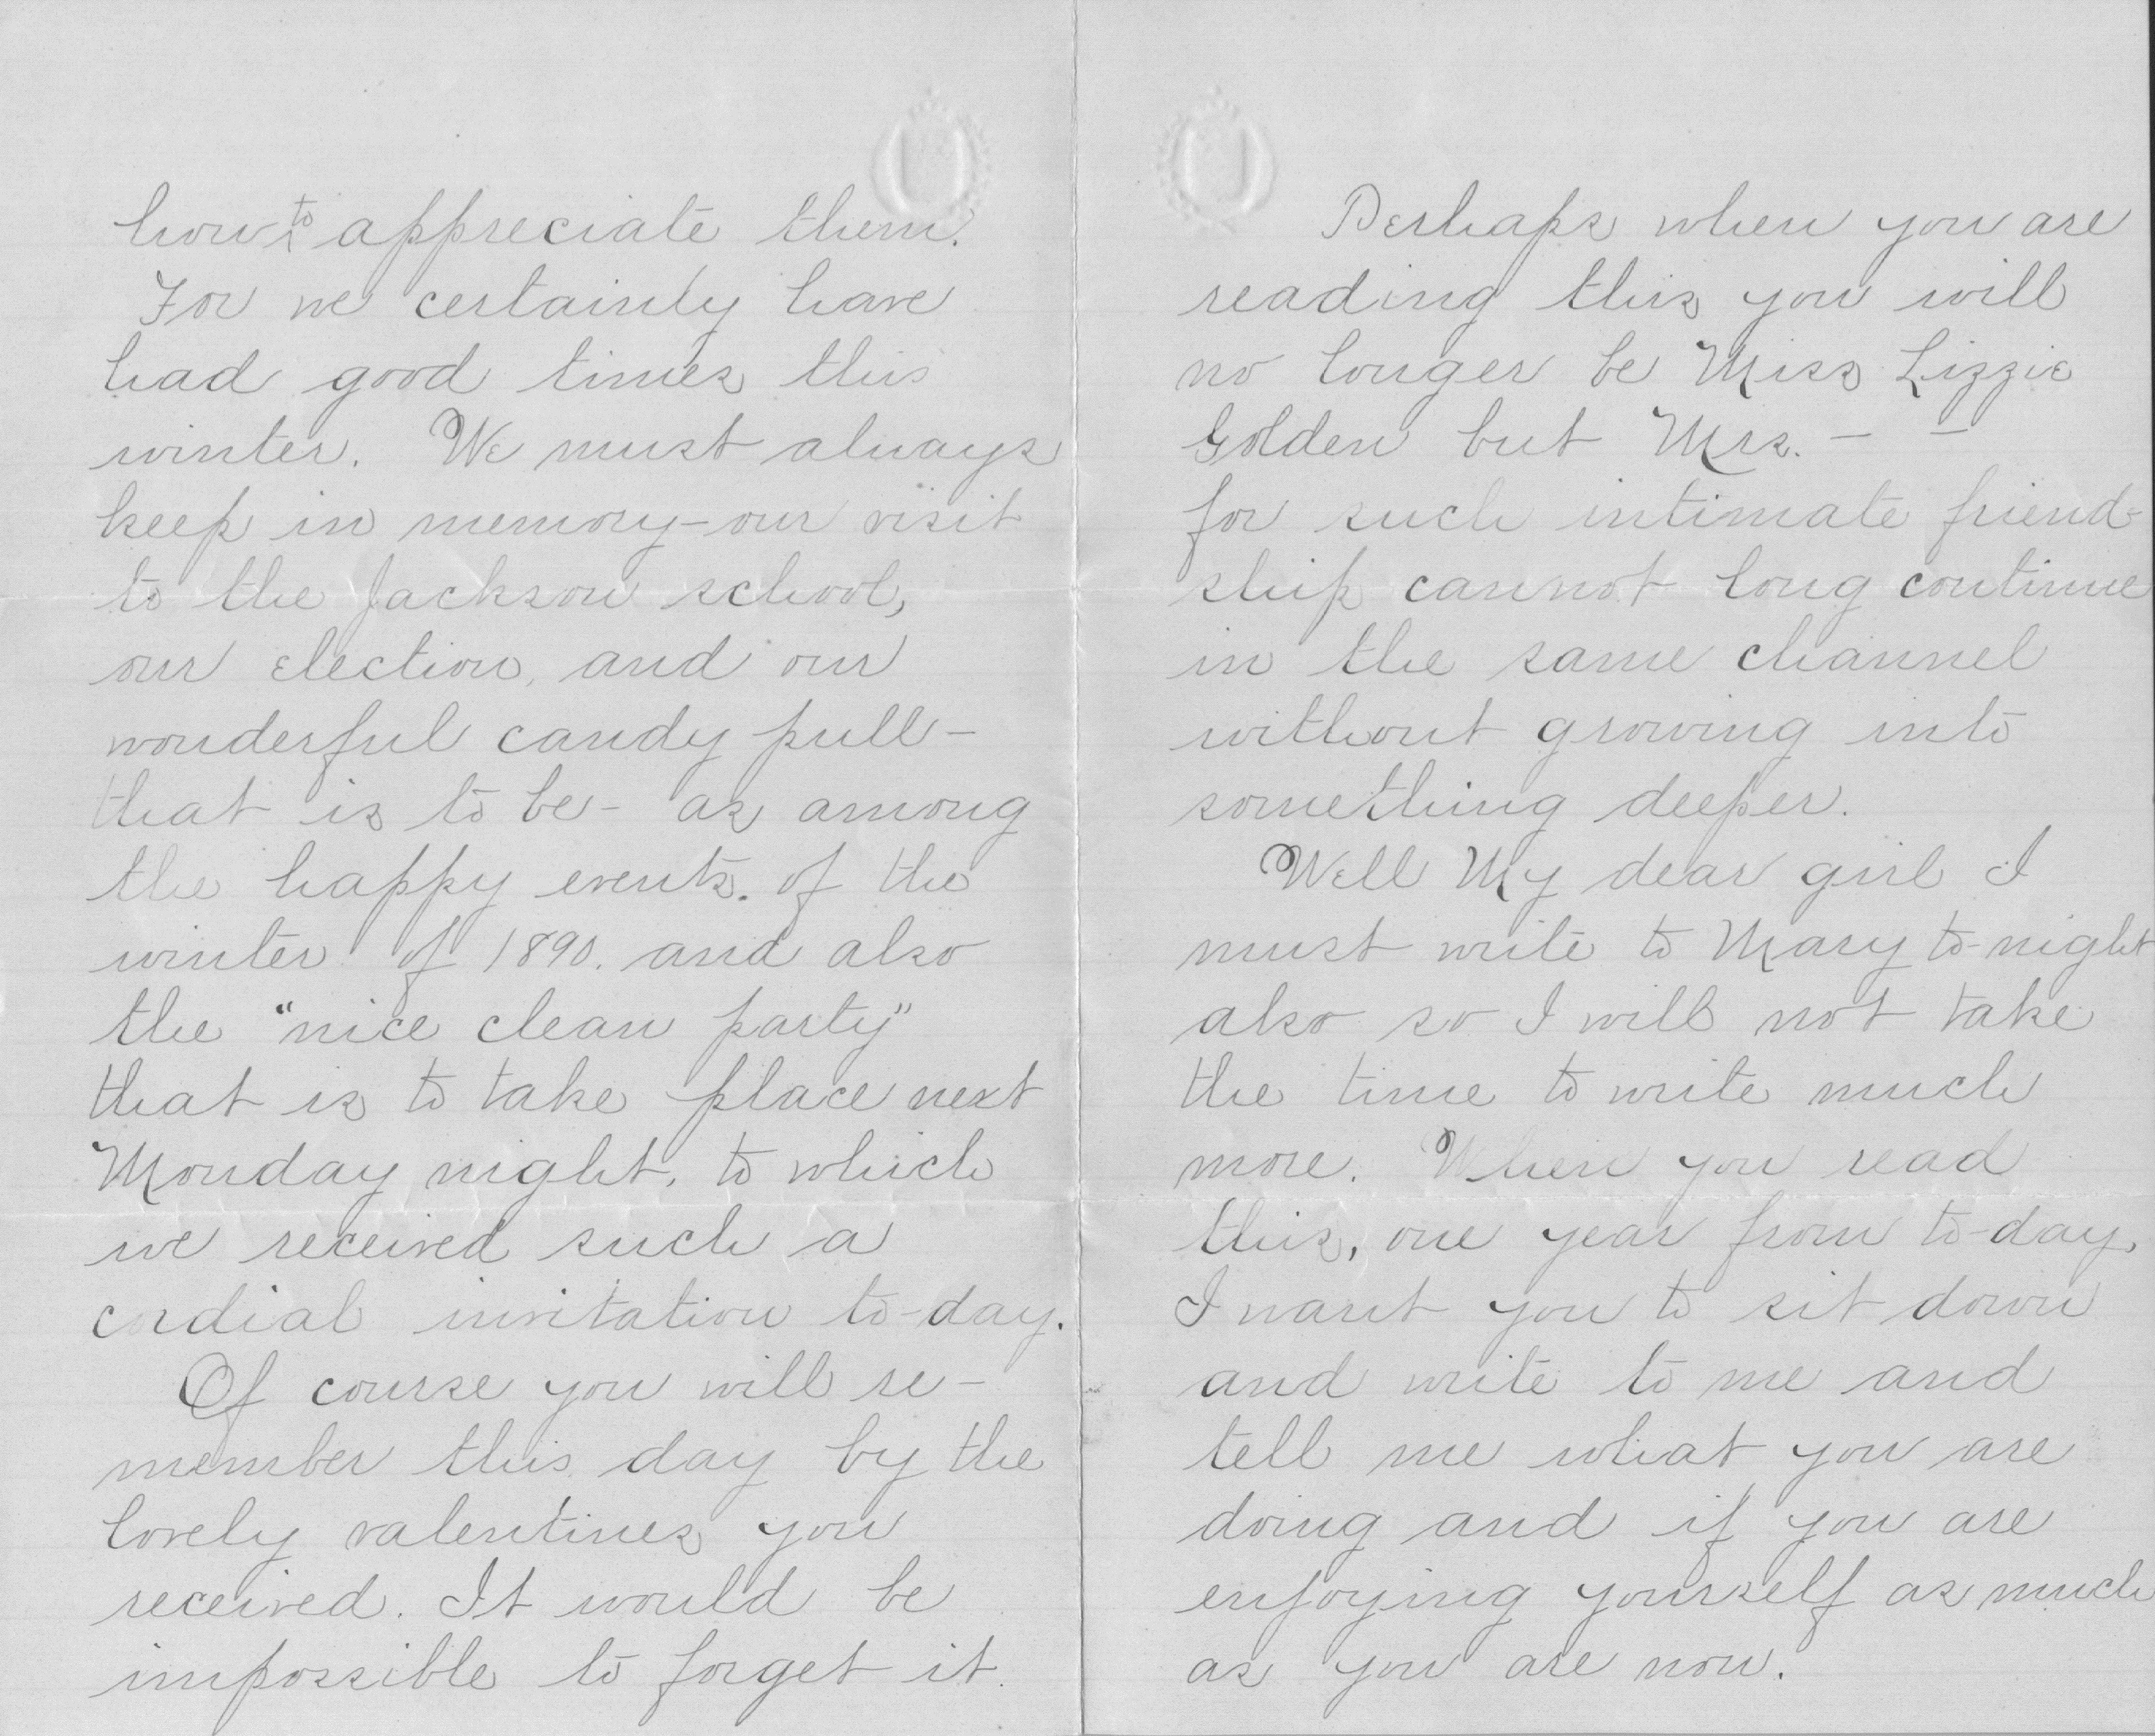 how to appreciate them.
For we certainly have
had good times this
winter. We must always
keep in memory - our visit
to the Jackson school,
our election, and our
wonderful candy pull -
that is to be - as among
the happy events. of the
winter of 1890. and also
the "nice clean party"
that is to take place next
Monday night, to which
we received such a
cordial invitation to-day.
Of course you will re-
member this day by the
lovely valentines you
received. It would be
impossible to forget it.
Perhaps when you are
reading this you will
no longer be Miss Lizzie
Golden but Mrs. — —
for such intimate friend-
ship cannot long continue
in the same channel
without growing into
something deeper.
Well My dear girl I
must write to Mary to-night
also so I will not take
the time to write much
more. When you read
this, one year from to-day,
I want you to sit down
and write to me and
tell me what you are
doing and if you are
enjoying yourself as much
as you are now.